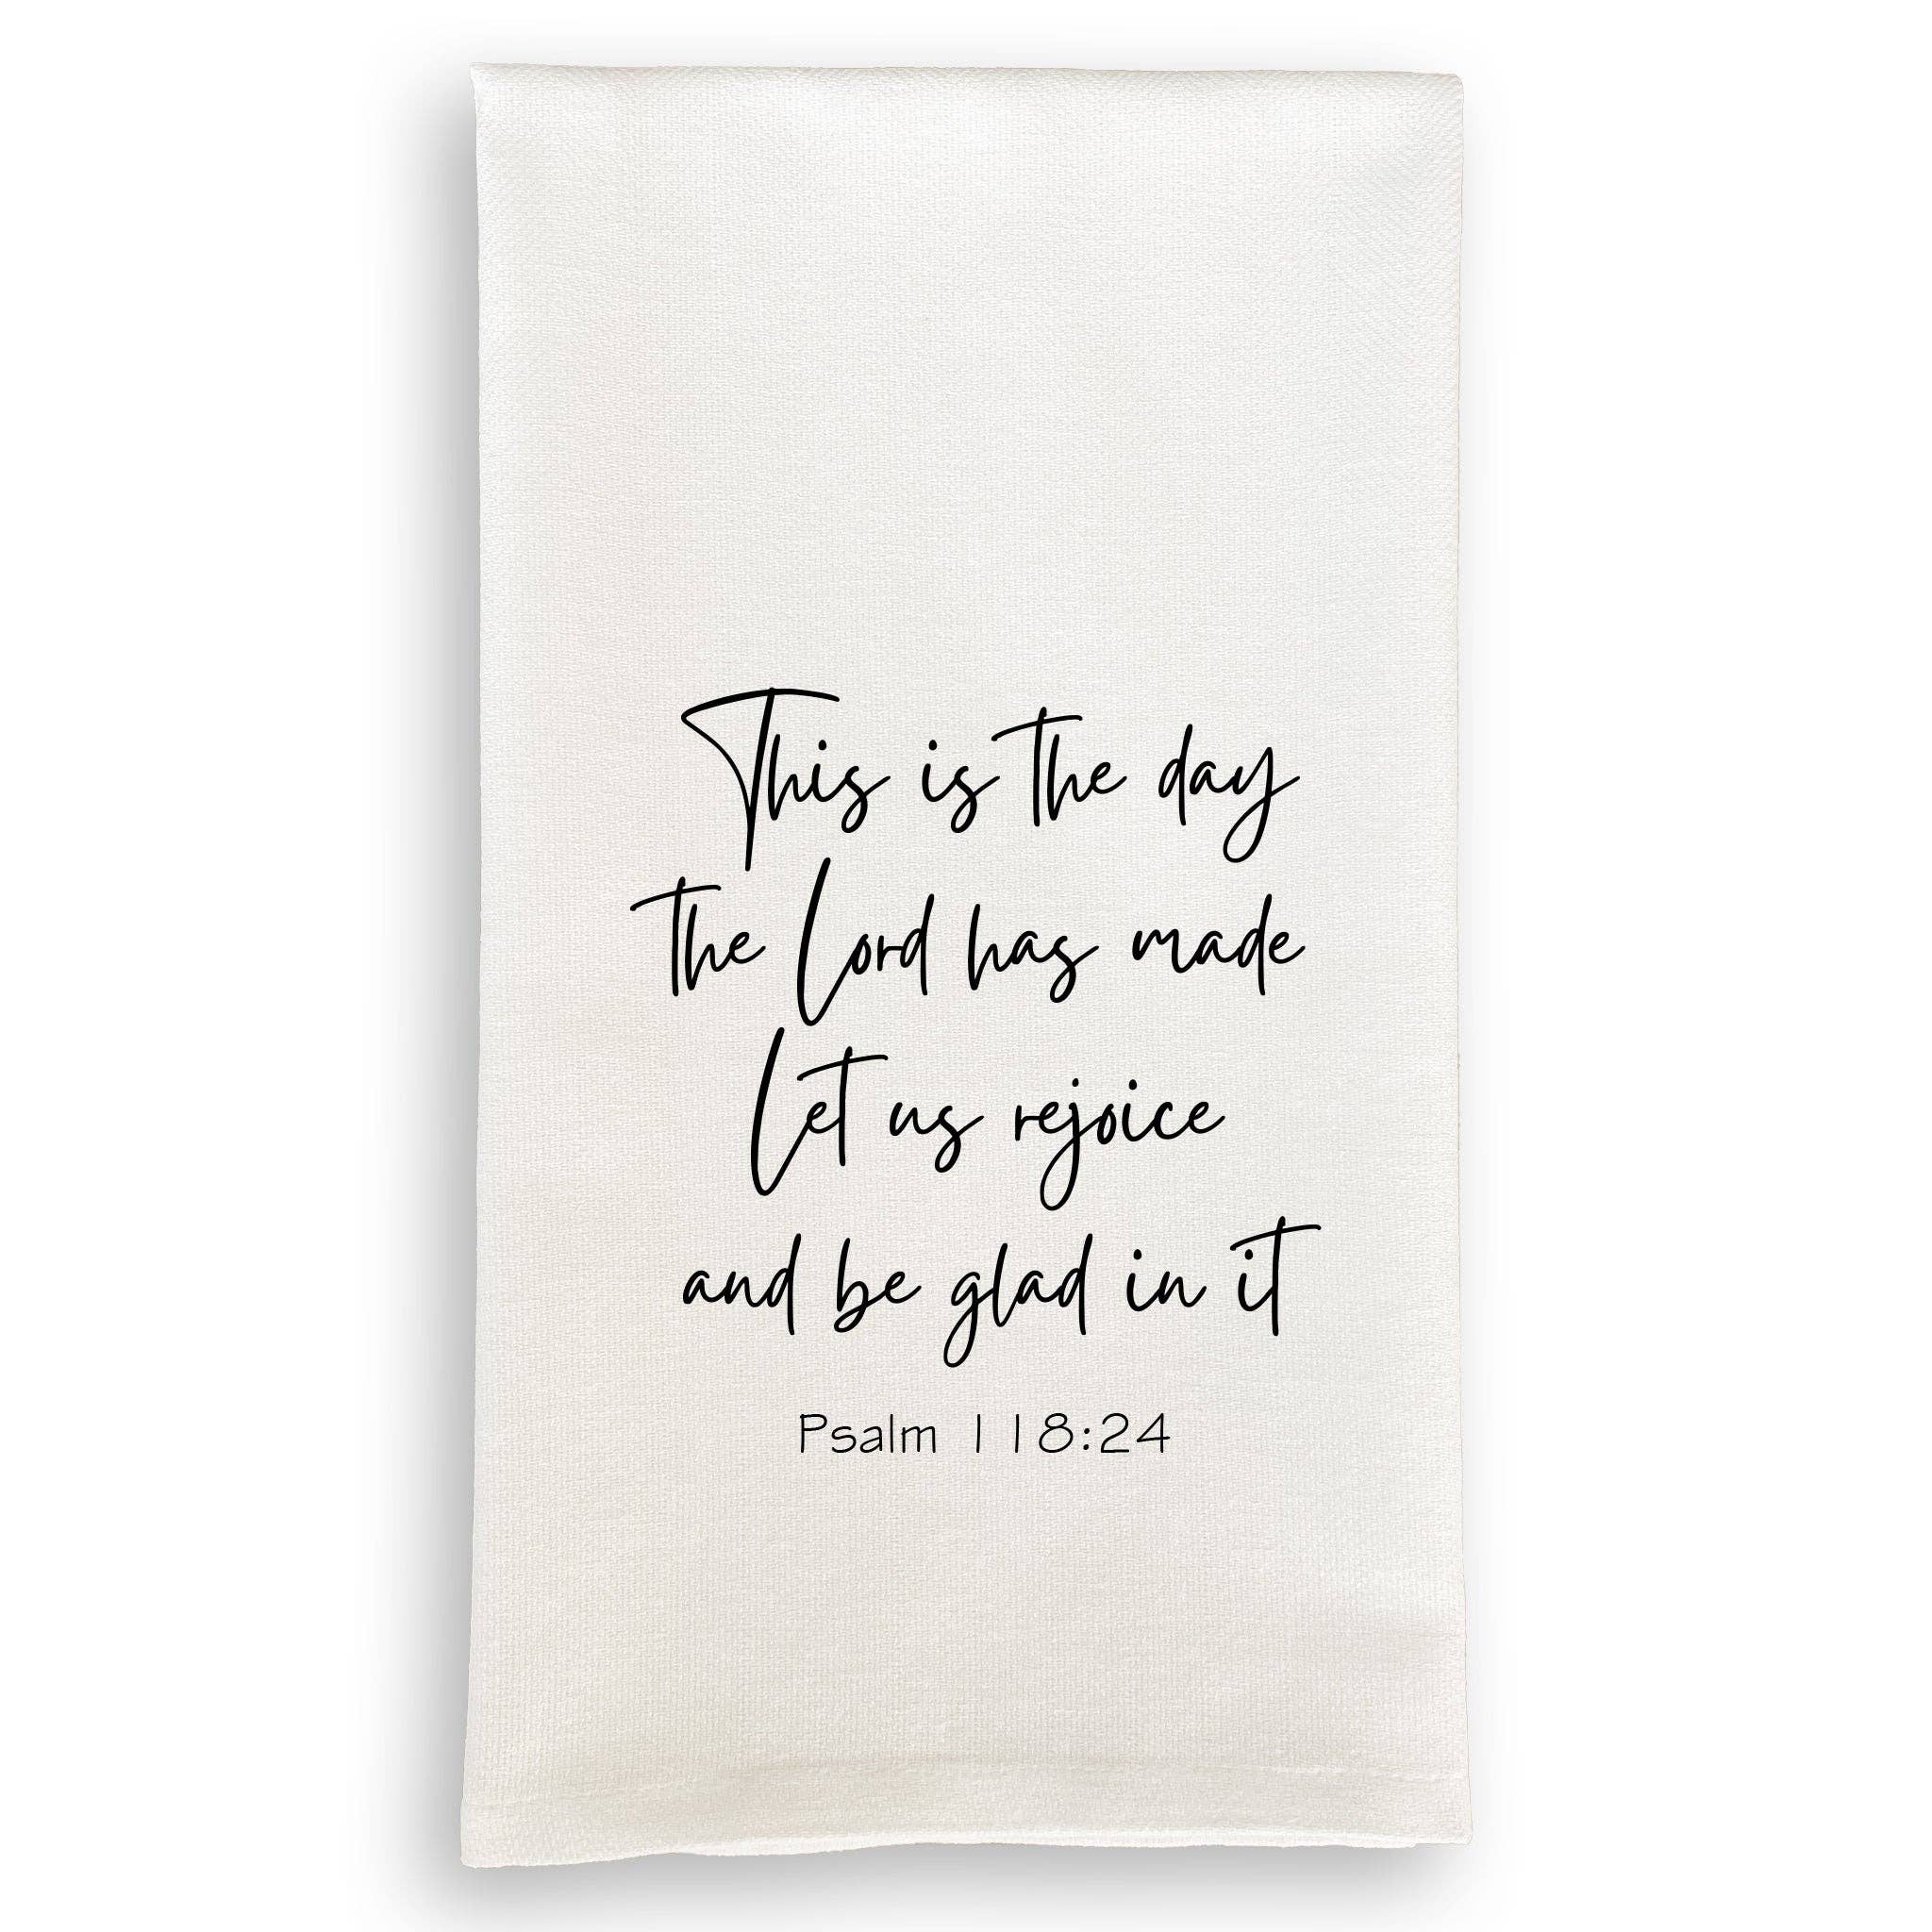 This is the day
the Lord has made
Let us rejoice
and be glad in it
Psalm 118:24